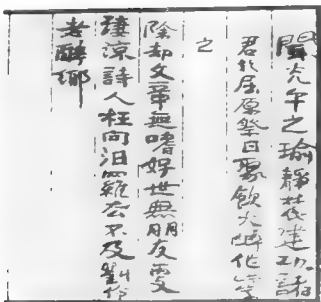 聞光午之瑜靜農建功諸
君於屈原祭日聚飲大醉作寄
之
除却文章無嗜好世無朋友更
淒涼詩人枉向汨羅去不及劉伶
老醉鄉